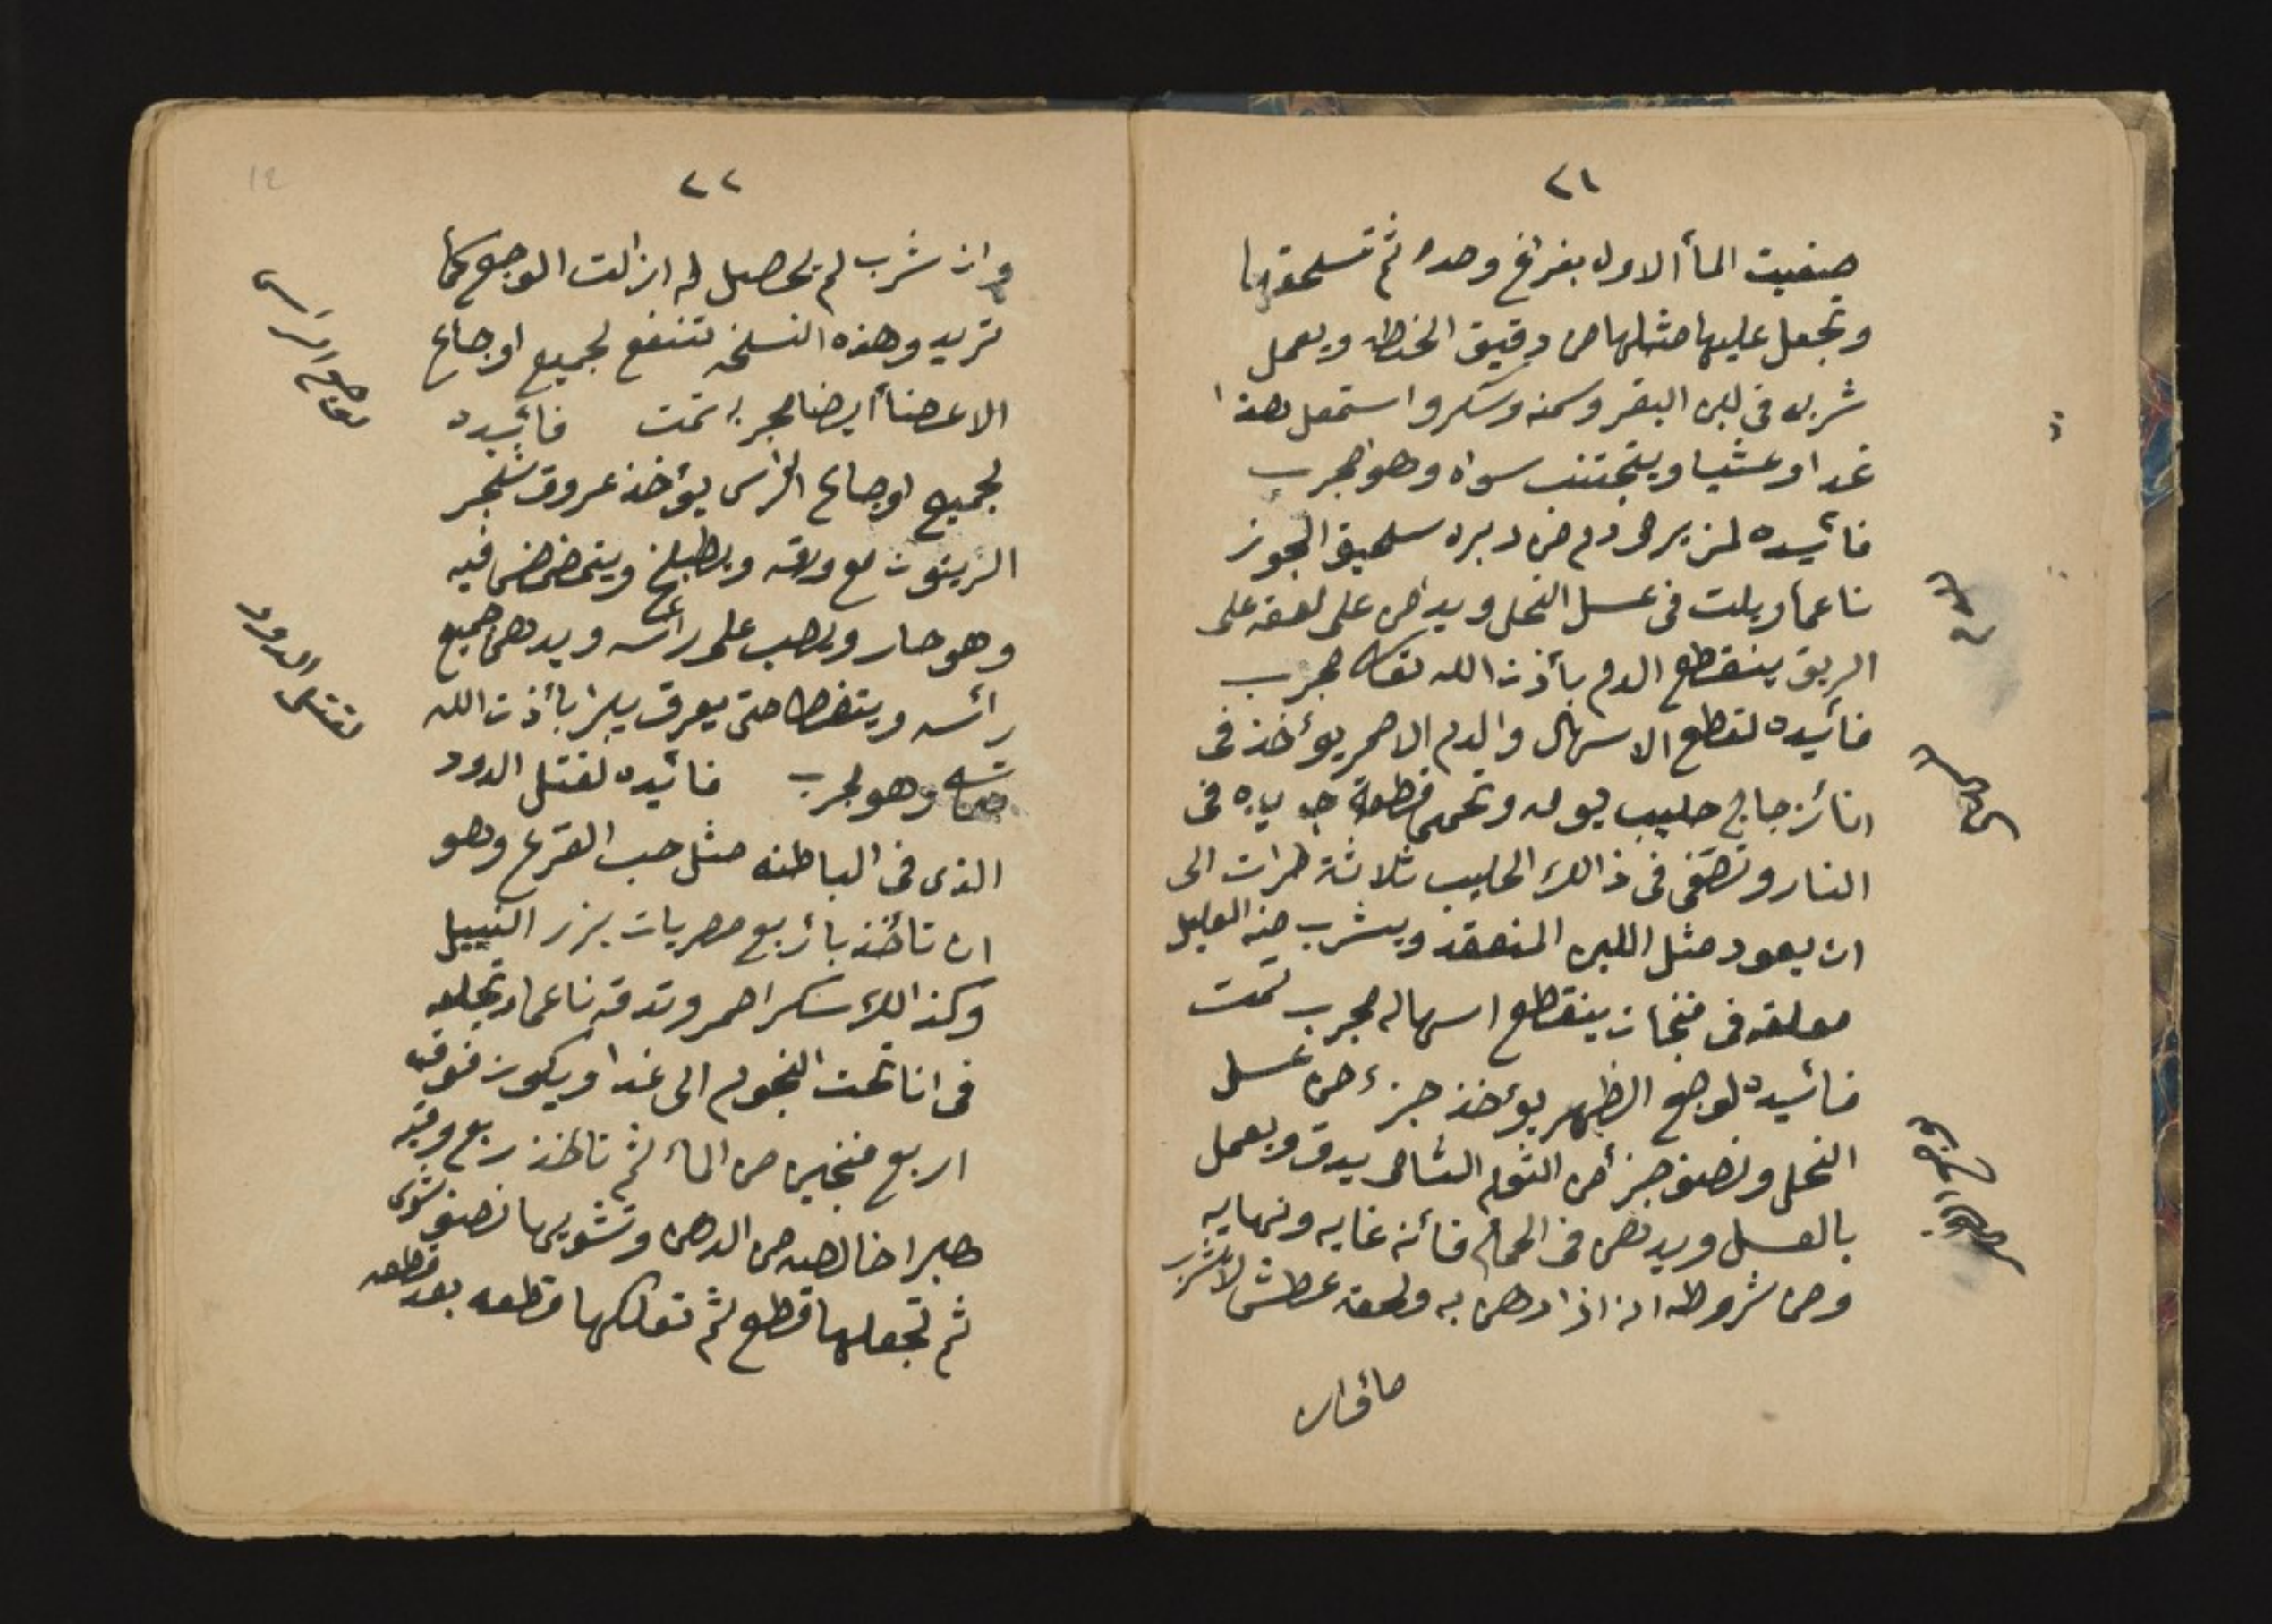 ٢١
صفيت المأ الاول بفراغ وحده ثم تسحقها
وتجعل عليها مثلها من دقيق الحنطه ويعمل
شربه فى لبن البقر وسمنه وسكر واستعمل هذا
غدا وعشيا ويتجتنب سواه وهو مجرب
فائيده لمن يرمى دم من دبره سحيق الجوز
ناعما ويلت فى عسل النحل ويداس على لعقه على
الريق ينقطع الدم بأذن الله تعالى مجرب
فائيده لقطع الاسهال والدم الاحمر يؤخذ فى
انائز جاج حليب يوله وتحمى قطعة فى
النار وتطفى فى ذالك الحليب ثلاثة مرات الى
ان يعود مثل اللبن المنعقد ويشرب منه العليل
معلقه فى فنجان ينقطع اسهاله مجرب تمت
فائيده لوجع الظهر يؤخذ جزء من عسل
النحل ونصف جزأ من الثوم الشامى يدق ويعمل
بالعسل ويدهن فى الحمام فأنه غايه ونهايه
ومن شروطه انه اذا دهن به ولحقه عطش لا يشرب
مأ وان
٢٢
وان شرب لم يحصل له ازالت الوجع كما
تريد وهذه النسخه تنفع لجميع اوجاع
الاعضأ ايضا مجربه تمت فائيده
لجميع اوجاع الراس يؤخذ عروق شجر
الزيتون مع ورقه ويطبخ ويتمضمض فيه
وهو حار ويصب على رأسه ويدهن جميع
رأسه ويتغطا حتى يعرق يبرا بأذن الله
تعالى وهو مجرب فائيده لقتل الدود
الذى فى الباطنه مثل حب القرع وهو
ان تأخذ بأربع مصريات بزر النييل
وكذالك سكر احمر وتدقه ناعما وتجعله
فى انا تحت النجوم الى غدا ويكون فوقه
اربع فنجين من المأ ثم تاخذ ربع وقيه
هبرا خالصه من الدهن وتشويها نصف شوى
ثم تجعلها قطع ثم تعلكها قطعه بعد قطعه
اوجاع الراس
لقتل الدود
12